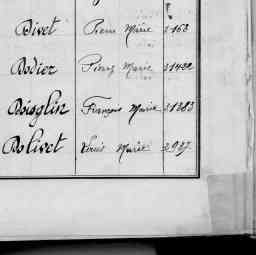 Bivet Pierre Marie 3163
Bodier Pierre Marie 31432
Boisglin François Marie 31383
Bolivet Louis Marie 2927